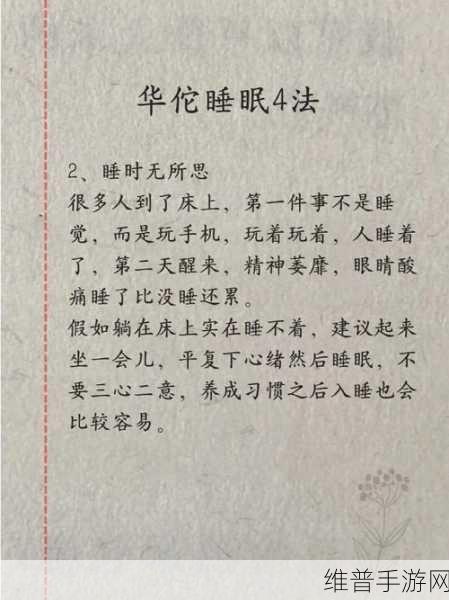 华佗睡眠4法
2、睡时无所思
很多人到了床上，第一件事不是睡
觉，而是玩手机，玩着玩着，人睡着
了，第二天醒来，精神萎靡，眼睛酸
痛睡了比没睡还累。
假如躺在床上实在睡不着，建议起来
坐一会儿，平复下心绪然后睡眠，不
要三心二意，养成习惯之后入睡也会
比较容易。
维普手游网